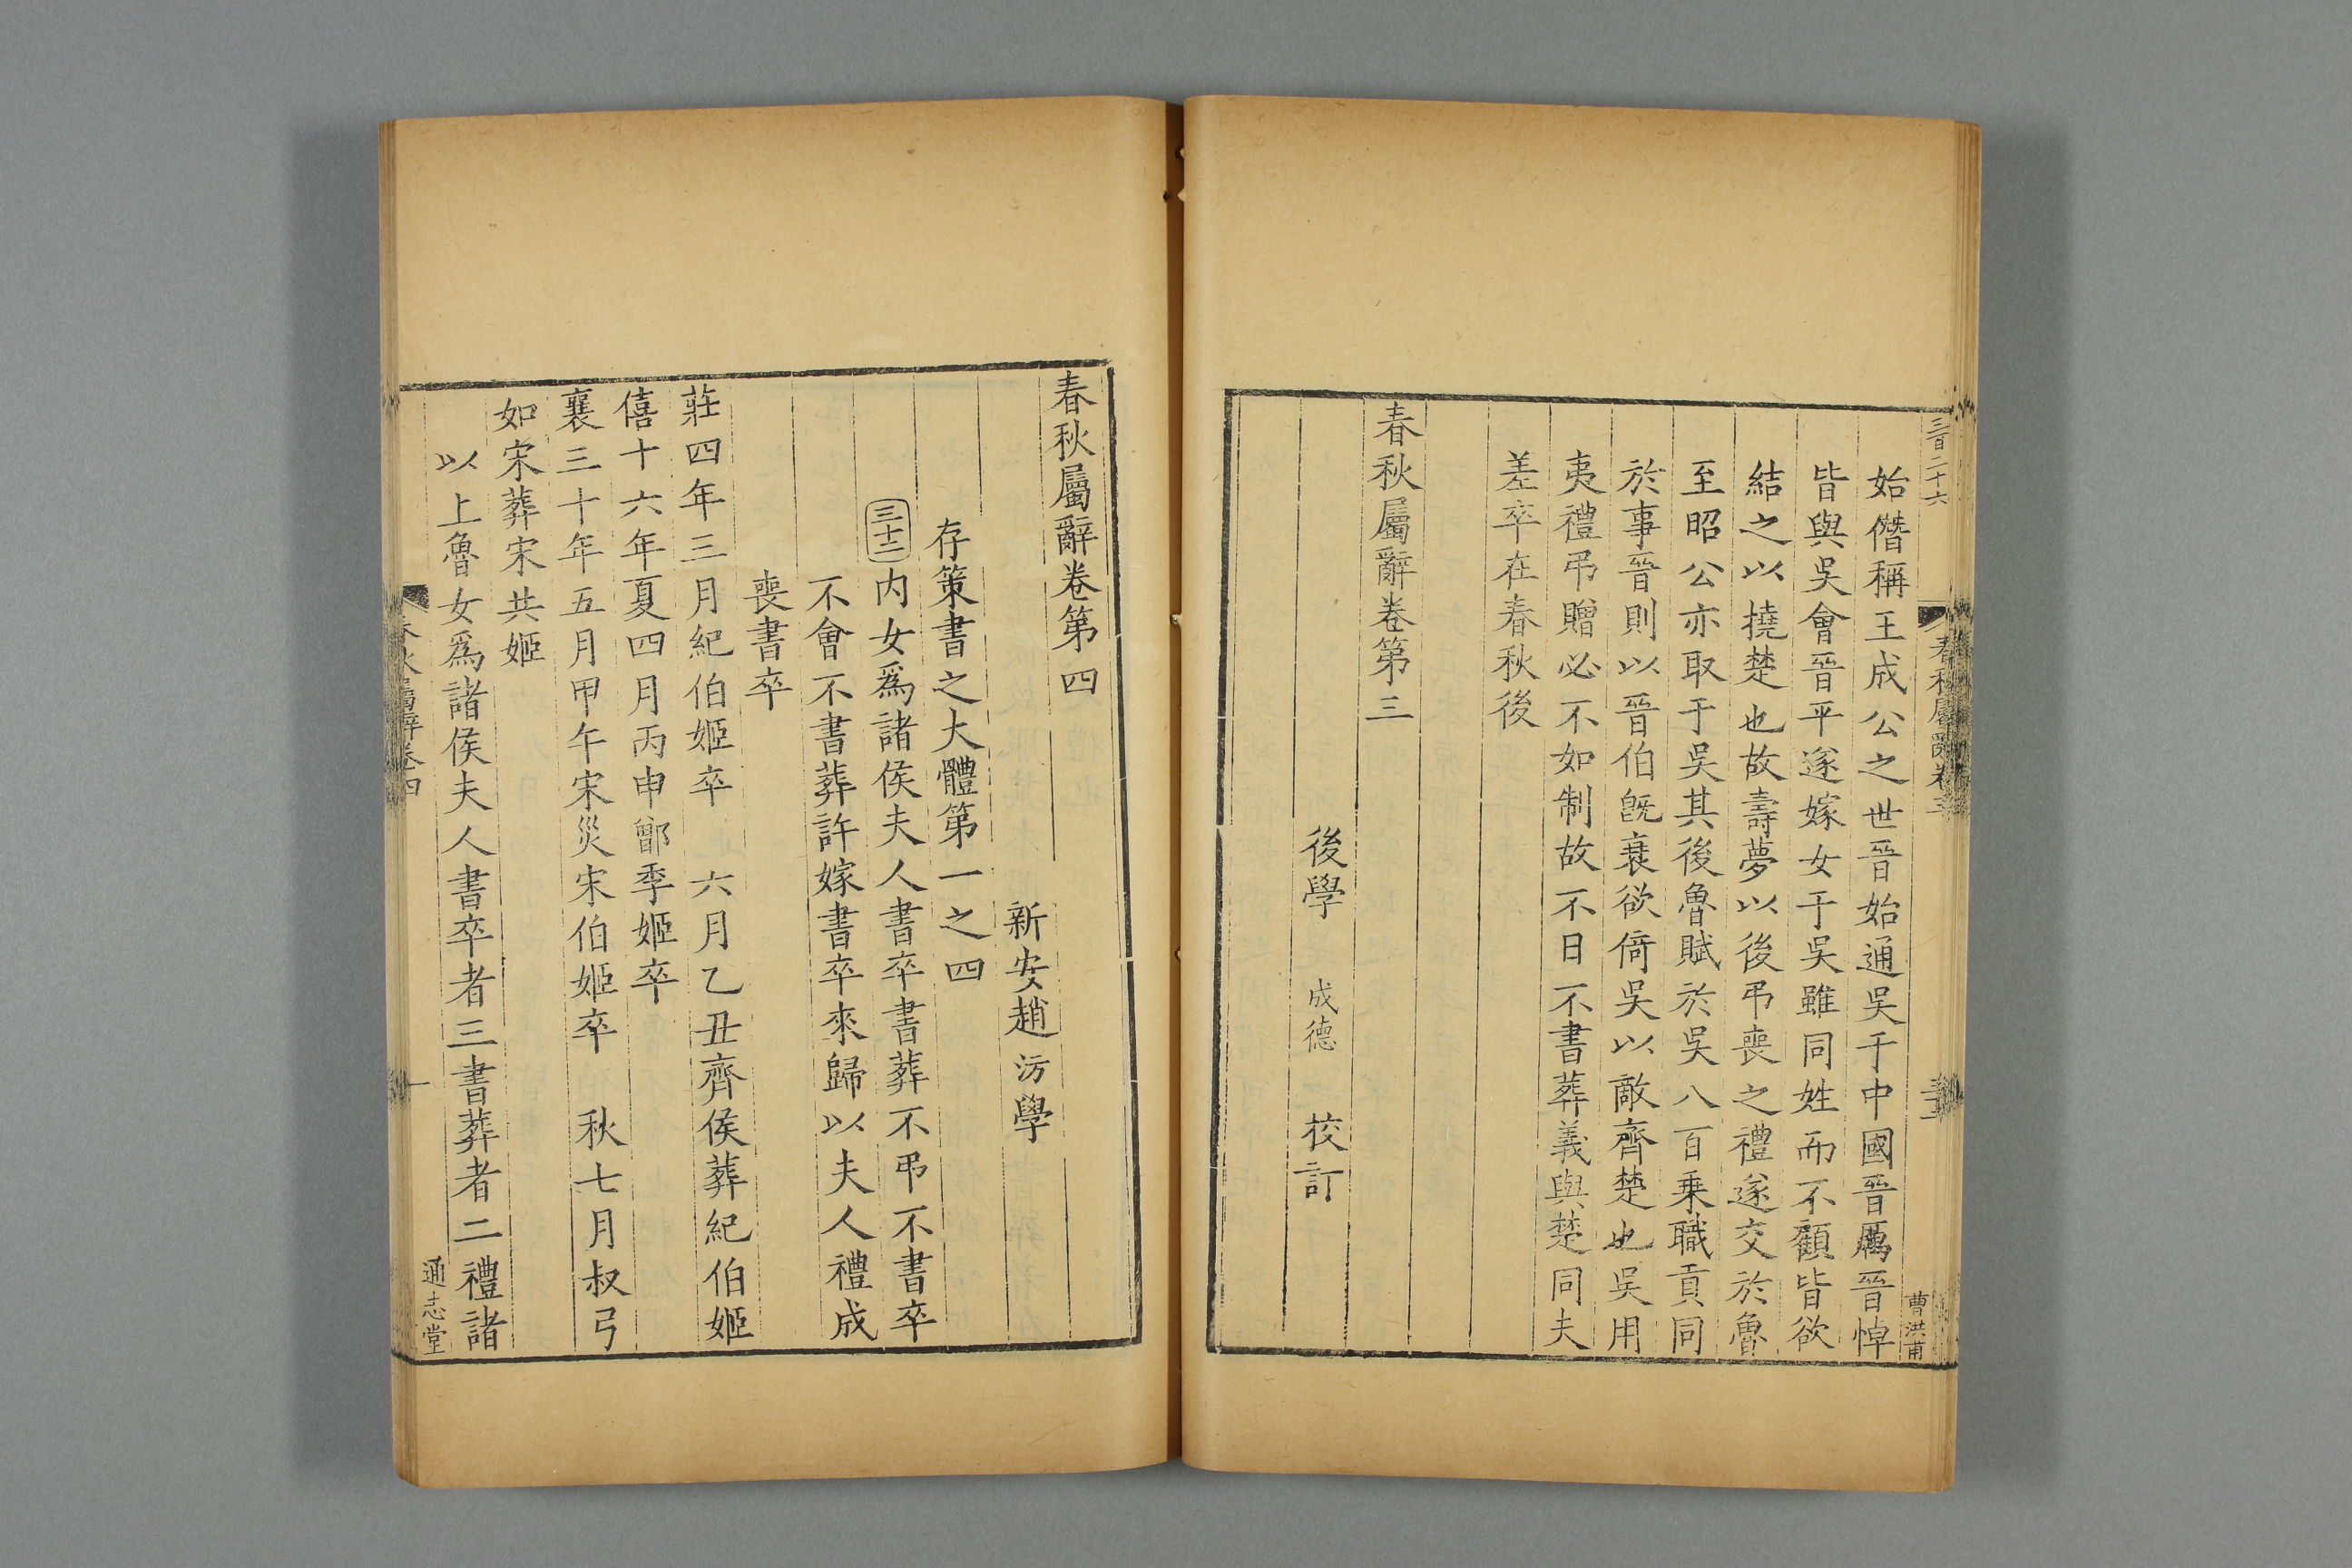 三百二十六
春秋屬辭卷三
曹洪甫
始僭稱王成公之世晉始通吳于中國晉厲晉悼
皆與吳會晉平遂嫁女于吳雖同姓而不顧皆欲
結之以撓楚也故壽夢以後弔喪之禮遂交於魯
至昭公亦取于吳其後魯賦於吳八百乗職貢同
於事晉則以晉伯旣衰欲倚吳以敵齊楚也吳用
夷禮弔贈必不如制故不日不書葬義與楚同夫
差卒在春秋後
春秋屬辭卷第三
後學 成德 校訂
春秋屬辭卷第四
新安趙汸學
存策書之大體第一之四
三十二內女爲諸侯夫人書卒書葬不弔不書卒
不會不書葬許嫁書卒來歸以夫人禮成
喪書卒
莊四年三月紀伯姬卒 六月乙丑齊侯葬紀伯姬
僖十六年夏四月丙申鄫季姬卒
襄三十年五月甲午宋災宋伯姬卒 秋七月叔弓
如宋葬宋共姬
以上魯女爲諸侯夫人書卒者三書葬者二禮諸
春秋屬辭卷四
一
通志堂